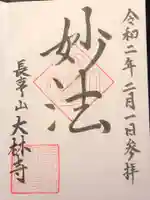 令和二年二月一日参拝
妙法
長享山 大林寺